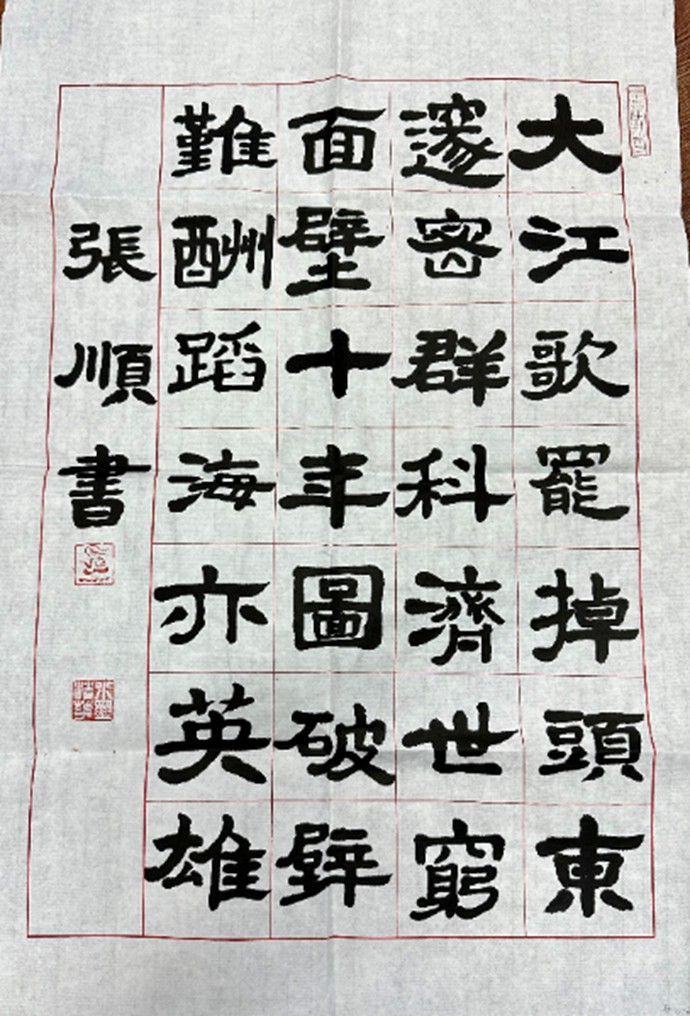 大江歌罷掉頭東
邃密群科濟世窮
面壁十年圖破壁
難酬蹈海亦英雄
張順書